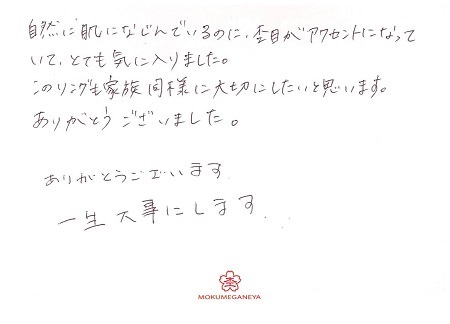 自然に肌になじんでいるのに、杢目がアクセントになって
いて、とても気に入りました。
このリングも家族同様に大切にしたいと思います。
ありがとうございました。
ありがとうございます
一生大事にします.
杢
MOKUMEGANEYA